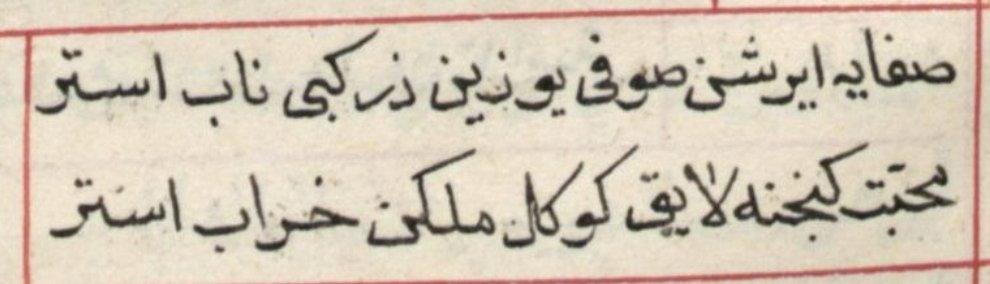 صفایه ایرشن صوفی یوزین زر کبی ناب استر
محبّت کنجنه لایق کوکل ملکن خراب استر